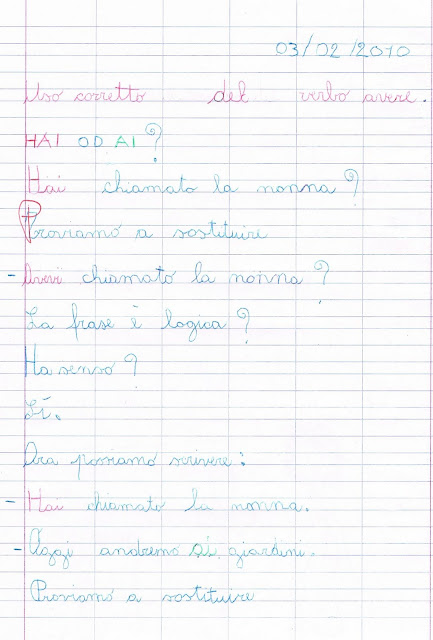 03/02/2010
Uso corretto del verbo avere.
HAI OD AI?
Hai chiamato la nonna?
Proviamo a sostituire
- Avevi chiamato la nonna?
La frase è logica?
Ha senso?
Sì.
Ora possiamo scrivere:
- Hai chiamato la nonna.
- Oggi andremo ai giardini.
Proviamo a sostituire